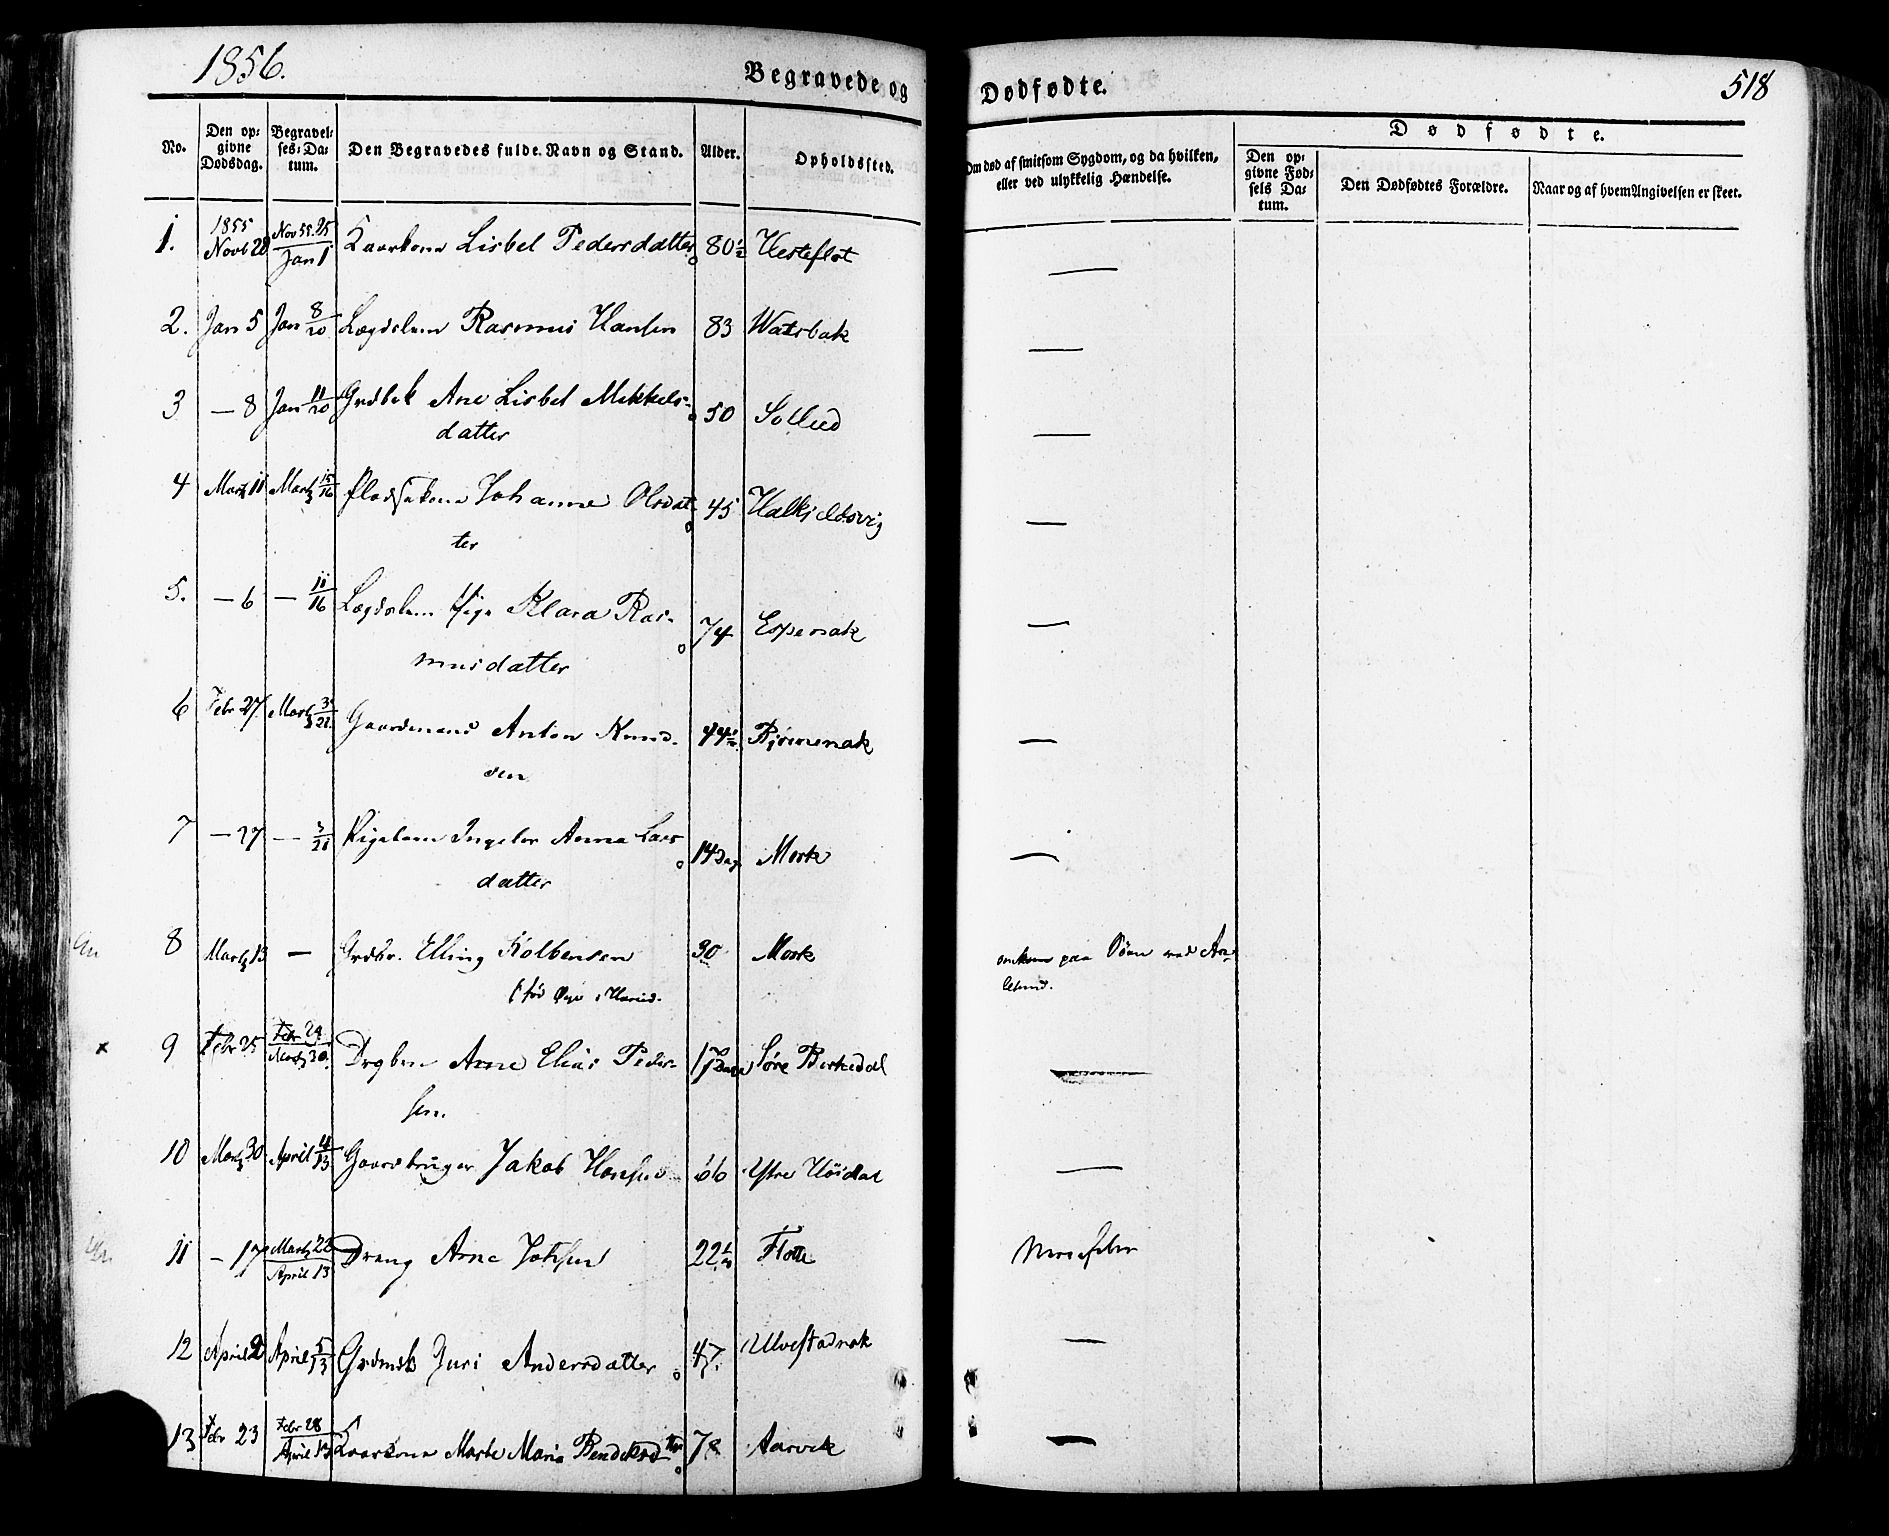 1856.
Begravede og Dødfødte.
518
No.
Den op-
givne
Dødsdag.
Begravel-
ses-Da-
tum.
Den Begravedes fulde Navn og Stand.
Alder.
Opholdssted.
Om død af smitsom Sygdom, og da hvilken,
eller ved ulykkelig Hændelse.
Dødfødte.
Den op-
givne Fød-
sels Da-
tum.
Den Dødfødtes Forældre.
Naar og af hvem Angivelsen er skeet.
1. 1855 Novb 20 Nov 55. 25 / Jan 1 Kaarkone Lisbet Pedersdatter 80 1/2 Hesteflot —
2. Jan 5 Jan 8/20 Lægdslem Rasmus Hansen 83 Watsbak —
3 — 8 Jan 11/20 Grdbek Ane Lisbet Mikkels-
datter 50 Sollid —
4 Martz 11 Martz 15/16 Pladsekone Johanne Olsdat-
ter 45 Halkjeldsvig —
5. — 6 — 11/16 Lægdslem Pige Klara Ras-
musdatter 74 Espenak —
6 Febr 27 Martz 3/21. Gaardmand Anton Knud-
sen 44 Bjørnenak —
7 — 27 — 3/21 Pigebarn Ingeler Anna Lars
datter 14 Dag Mork —
8 Martz 13 — Grdbr. Elling Kolbensen
(fød Øye i Hareid. 30 Mork omkom paa Søen ved Aa-
lesund.
x 9 Febr 25 Febr 29 / Martz 30. Drgbn Arne Elias Peder-
sen. 17 Dage Søre Birkedal —
10 Martz 30 April 4/13 Gaardbruger Jakob Hansen 66 Ystre Høidal —
11 — 17 Martz 22 / April 13 Dreng Arne Jetsen 22 Flotte Nervefeber
12 April 2 April 5/13 Grdmds Guri Andersdatter 47. Ulvestadnak —
13 Febr 23 Febr 28 / April 13 Kaarkone Marte Maria Bendiksdtter 78 Aarvik —